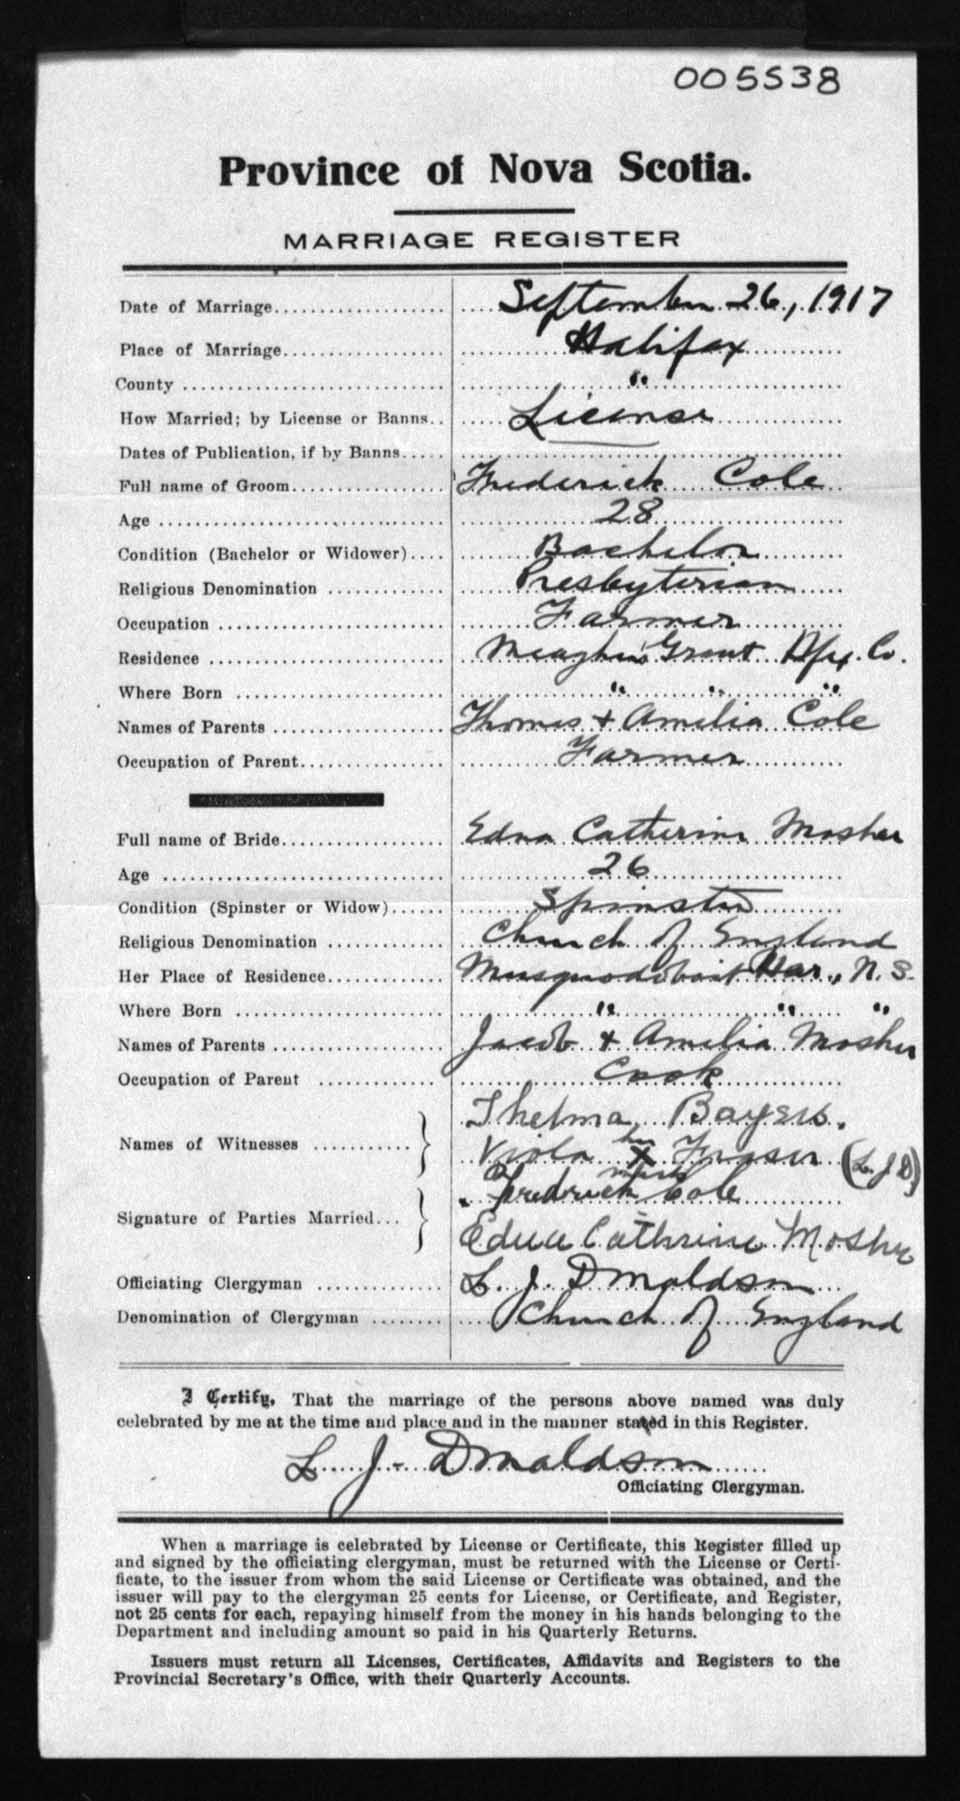 005538
Province of Nova Scotia.
MARRIAGE REGISTER
Date of Marriage.................... September 26, 1917
Place of Marriage.................. Halifax
County ............................ "
How Married; by License or Banns.. License
Dates of Publication, if by Banns.....
Full name of Groom.................. Frederick Cole
Age ............................... 28
Condition (Bachelor or Widower).... Bachelor
Religious Denomination ............. Presbyterian
Occupation ......................... Farmer
Residence .......................... Meagher's Grant Hfx. Co.
Where Born ........................ " " "
Names of Parents ................... Thomas & Amelia Cole
Occupation of Parent................ Farmer
Full name of Bride.................. Edna Catherine Mosher
Age ............................... 26
Condition (Spinster or Widow)...... Spinster
Religious Denomination ............. Church of England
Her Place of Residence............. Musquodoboit Har., N. S.
Where Born ........................ " " "
Names of Parents ................... Jacob & Amelia Mosher
Occupation of Parent ............... Cook
Thelma Bayers.
Names of Witnesses ........... } Viola her X mark Fraser (L. J. D.)
Fredrick Cole
Signature of Parties Married... } Edna Cathrine Mosher
Officiating Clergyman .............. L. J. Donaldson
Denomination of Clergyman ........ Church of England
I Certify, That the marriage of the persons above named was duly
celebrated by me at the time and place and in the manner stated in this Register.
L. J. Donaldson
Officiating Clergyman.
When a marriage is celebrated by License or Certificate, this Register filled up
and signed by the officiating clergyman, must be returned with the License or Certi-
ficate, to the issuer from whom the said License or Certificate was obtained, and the
issuer will pay to the clergyman 25 cents for License, or Certificate, and Register,
not 25 cents for each, repaying himself from the money in his hands belonging to the
Department and including amount so paid in his Quarterly Returns.
Issuers must return all Licenses, Certificates, Affidavits and Registers to the
Provincial Secretary's Office, with their Quarterly Accounts.